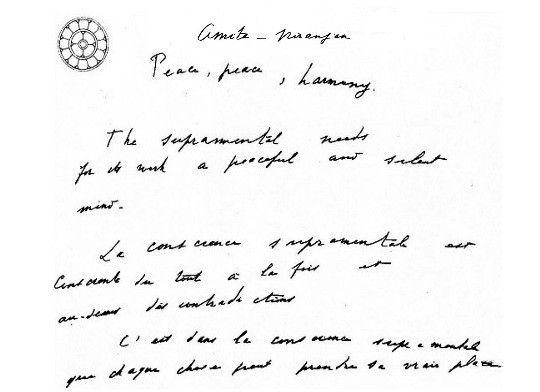 Amita - Niranjan
Peace, peace, harmony.
The supramental needs
for its work a peaceful and silent
mind.
La conscience supramentale est
consciente du tout à la fois et
au-dessus des contradictions
C'est dans la conscience supramentale
que chaque chose peut prendre sa vraie place